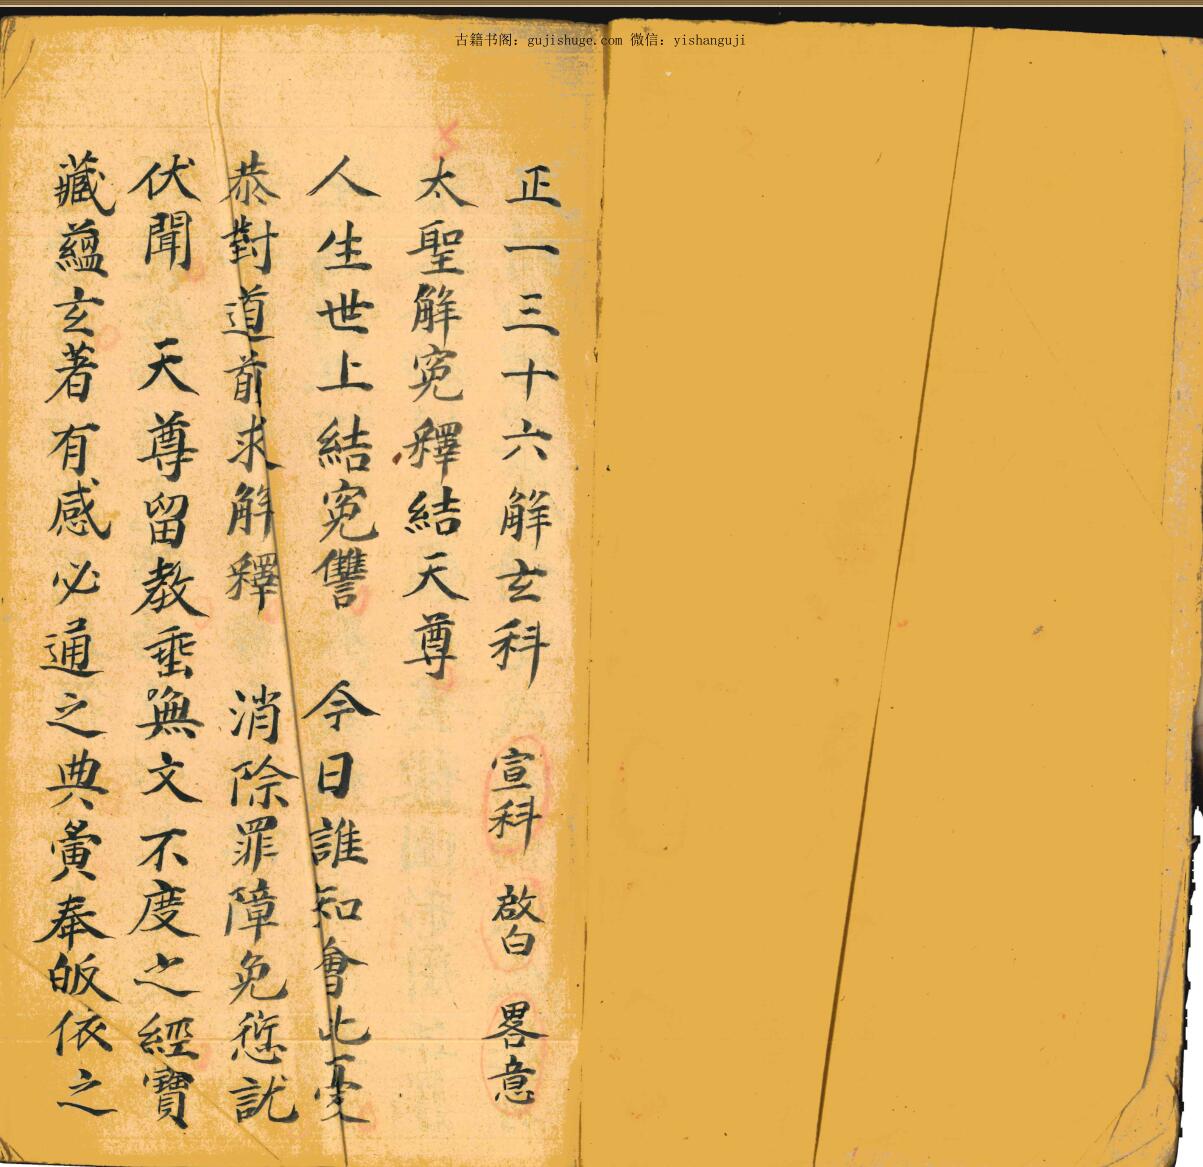 古籍书阁：gujishuge.com 微信：yishanguji
正一三十六解玄科 宣科 啟白 畧意
太聖解寃釋結天尊
人生世上結寃讐 今日誰知會此憂
恭對道前求解釋 消除罪障免愆訧
伏聞 天尊留教垂無文不度之經寶
藏蘊玄著有感必通之典黃奉皈依之